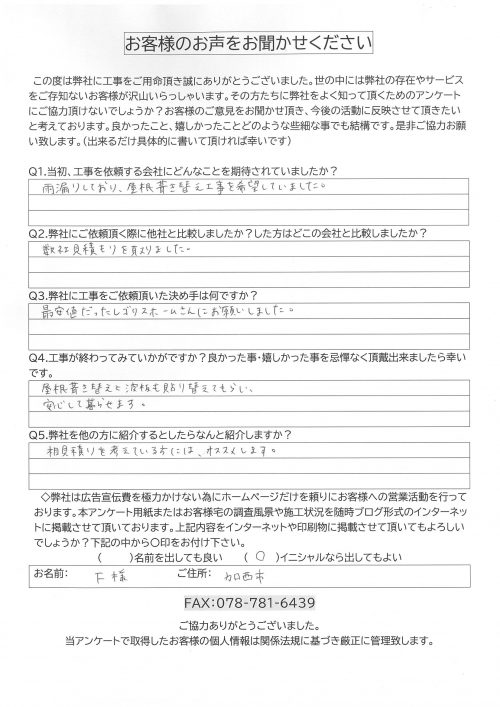 お客様のお声をお聞かせください
この度は弊社に工事をご用命頂き誠にありがとうございました。世の中には弊社の存在やサービス
をご存知ないお客様が沢山いらっしゃいます。その方たちに弊社をよく知って頂くためのアンケート
にご協力頂けないでしょうか?お客様のご意見をお聞かせ頂き、今後の活動に反映させて頂きたい
と考えております。良かったこと、嬉しかったことどのような些細な事でも結構です。是非ご協力お願
い致します。(出来るだけ具体的に書いて頂ければ幸いです)
Q1.当初、工事を依頼する会社にどんなことを期待されていましたか?
雨漏りしており、屋根葺き替え工事を希望していました。
Q2.弊社にご依頼頂く際に他社と比較しましたか?した方はどこの会社と比較しましたか?
数社見積もりを取りました。
Q3.弊社に工事をご依頼頂いた決め手は何ですか?
最安値だったレゴリスホームさんにお願いしました。
Q4.工事が終わってみていかがですか?良かった事・嬉しかった事を忌憚なく頂戴出来ましたら幸い
です。
屋根葺き替えと波板も貼り替えてもらい、
安心して暮らせます。
Q5.弊社を他の方に紹介するとしたらなんと紹介しますか?
相見積りを考えている方には、オススメします。
◇弊社は広告宣伝費を極力かけない為にホームページだけを頼りにお客様への営業活動を行って
おります。本アンケート用紙またはお客様宅の調査風景や施工状況を随時ブログ形式のインターネッ
トに掲載させて頂いております。上記内容をインターネットや印刷物に掲載させて頂いてもよろしい
でしょうか?下記の中から〇印をお付け下さい。
(　　)名前を出しても良い　(　〇　)イニシャルなら出してもよい
お名前:　F 様　ご住所:　加西市
FAX:078-781-6439
ご協力ありがとうございました。
当アンケートで取得したお客様の個人情報は関係法規に基づき厳正に管理致します。